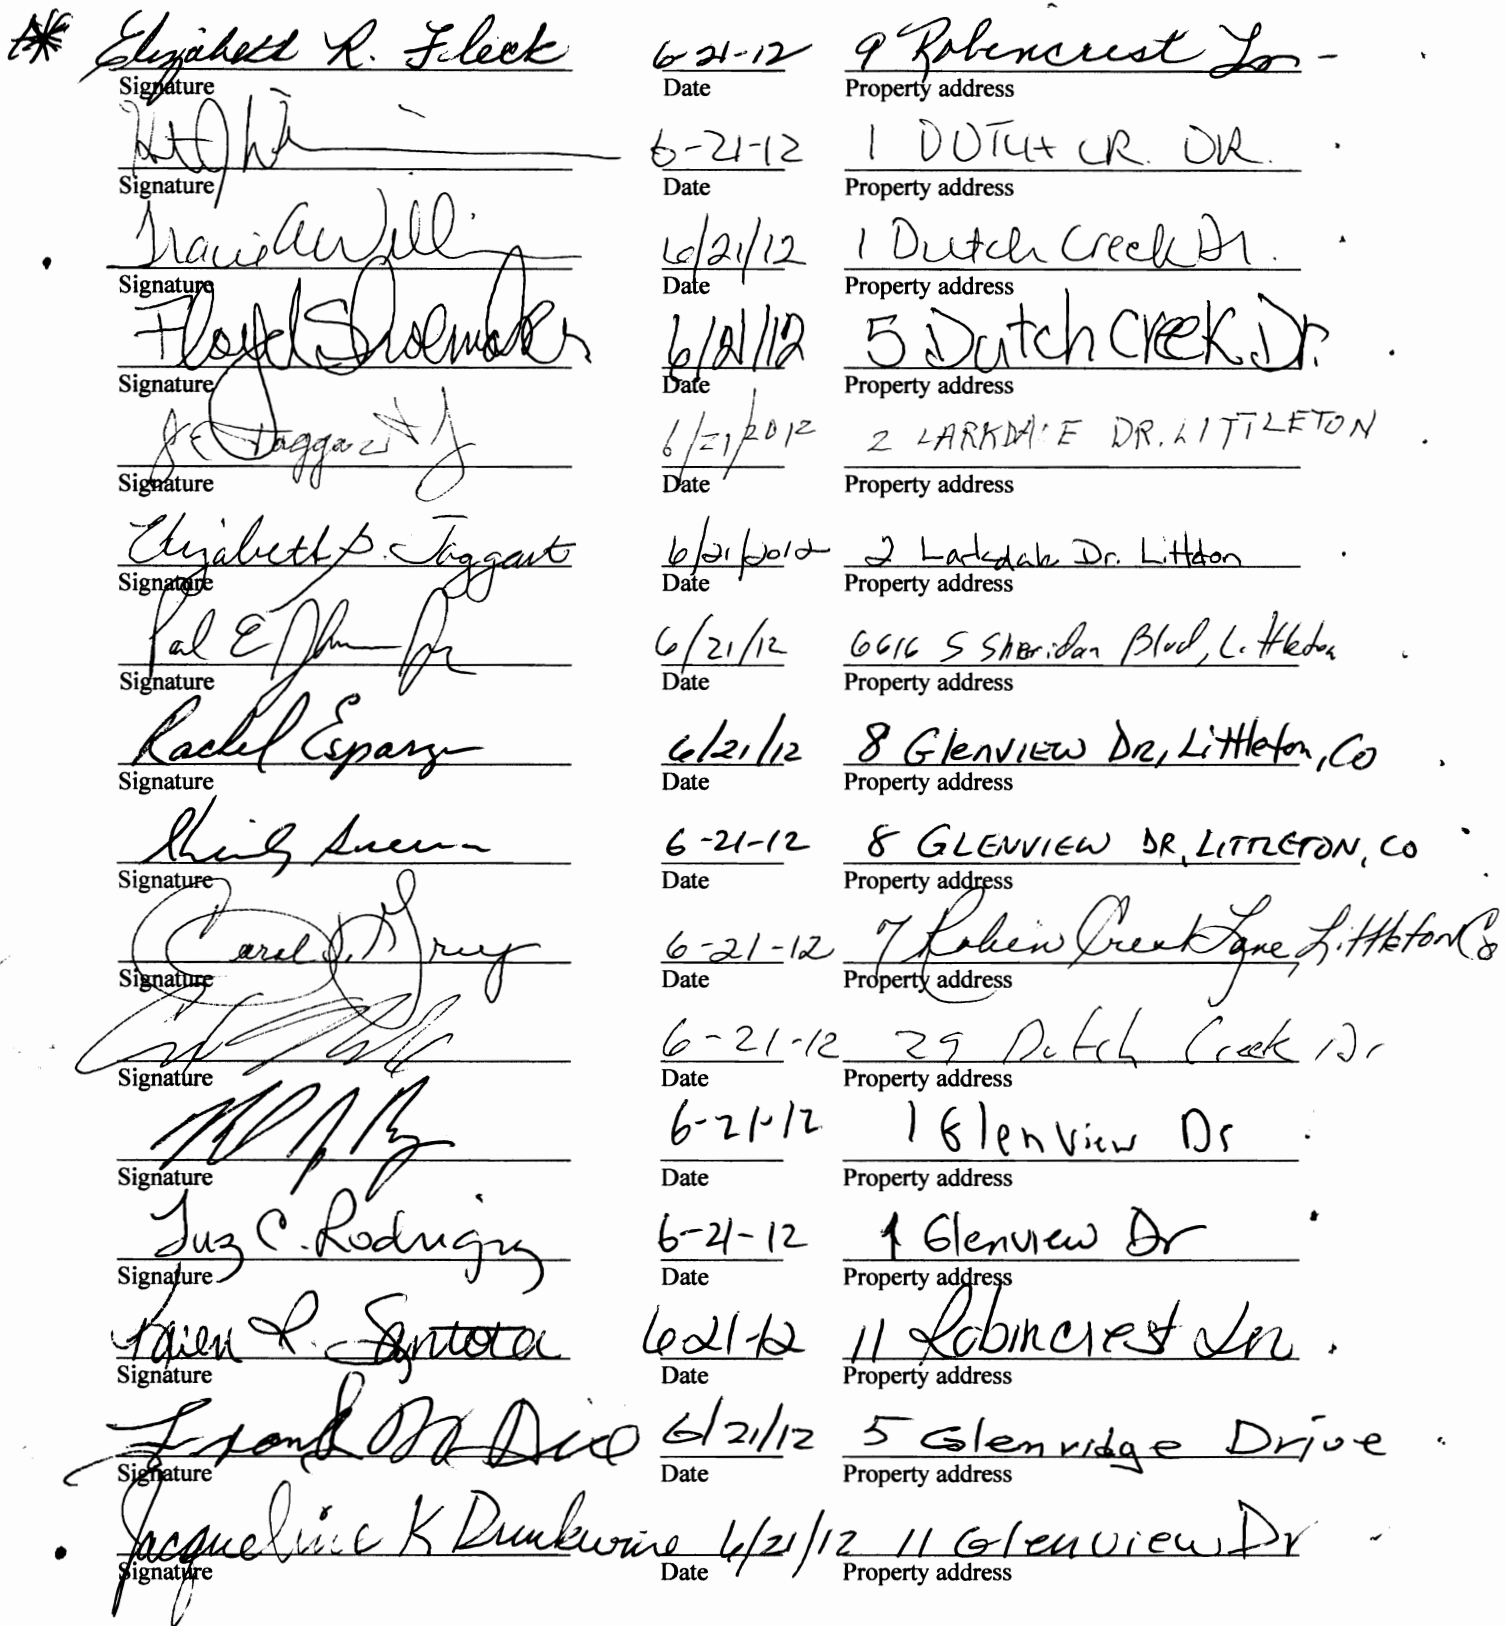 Elizabeth R. Fleck 6-21-12 9 Robincrest Ln
Signature Date Property address
6-21-12 1 DUTCH CR. DR.
Signature Date Property address
6/21/12 1 Dutch Creek Dr.
Signature Date Property address
Floyd Shoemaker 6/21/12 5 Dutch Creek Dr.
Signature Date Property address
Taggart 6/21/2012 2 LARKDALE DR. LITTLETON
Signature Date Property address
Elizabeth S. Taggart 6/21/2012 2 Larkdale Dr. Littleton
Signature Date Property address
6/21/12 6616 S Sheridan Blvd, Littleton
Signature Date Property address
Rachel Esparza 6/21/12 8 Glenview Dr, Littleton, Co
Signature Date Property address
6-21-12 8 GLENVIEW DR, LITTLETON, CO
Signature Date Property address
Carol J. 6-21-12 7 Robin Crest Lane, Littleton Co
Signature Date Property address
6-21-12 29 Dutch Creek Dr
Signature Date Property address
6-21-12 1 Glenview Dr
Signature Date Property address
Luz C. Rodriguez 6-21-12 1 Glenview Dr
Signature Date Property address
Karen L. 6-21-12 11 Robincrest Ln
Signature Date Property address
Frank 6/21/12 5 Glenridge Drive
Signature Date Property address
Jacqueline K Drunkwine 6/21/12 11 Glenview Dr
Signature Date Property address